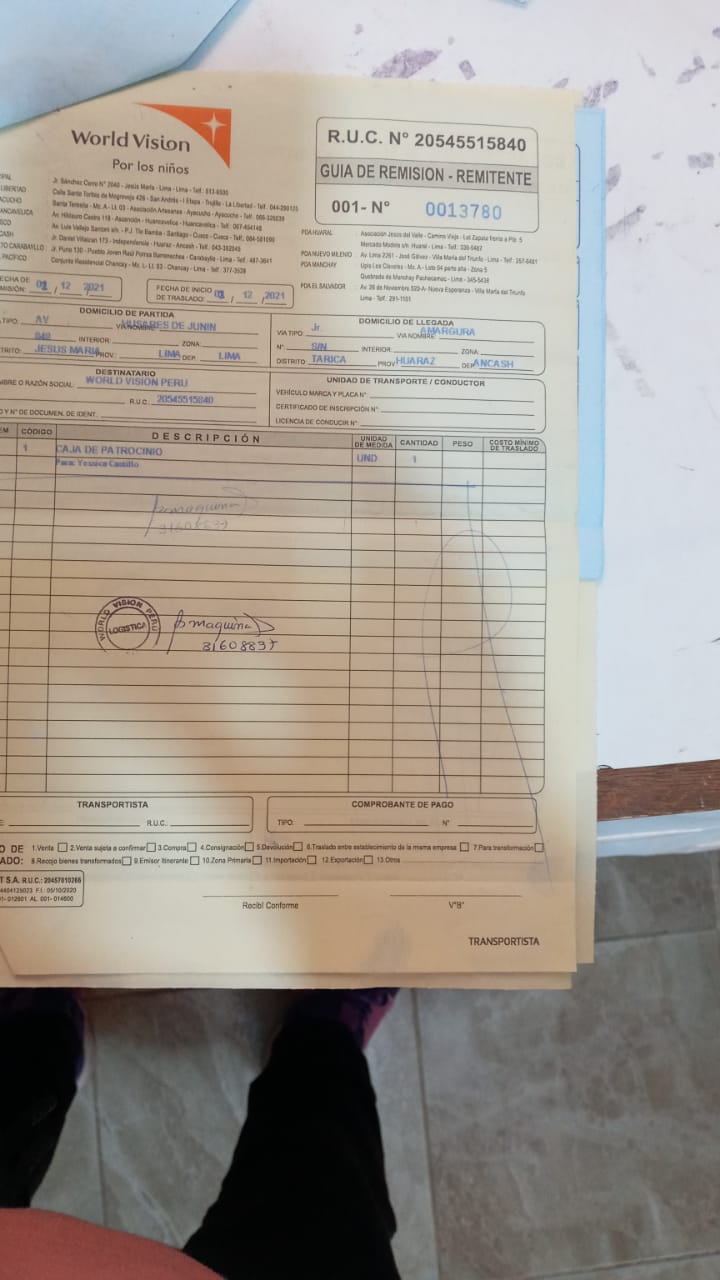 World Vision
Por los niños
R.U.C. N° 20545515840
GUIA DE REMISION - REMITENTE
001- N° 0013780
Jr. Sánchez Cerro N° 2040 - Jesús María - Lima - Telf.: 613-6900
Calle Santo Toribio de Mogrovejo 426 - San Andrés - I Etapa - Trujillo - La Libertad - Telf.
Santa Teresita - Mz. A - Lt. 03 - Asociación Artesanos - Ayacucho - Ayacucho - Telf.:
Av. Hildauro Castro 118 - Ascención - Huancavelica - Huancavelica - Telf.: 067-454148
Av. Luis Vallejo Santoni s/n - P.J. Tio Bamba - Santiago - Cusco - Cusco - Telf.:
Jr. Daniel Villaizan 173 - Independencia - Huaraz - Ancash - Telf.
Jr. Puno 130 - Pueblo Joven Raúl Porras Barrenechea - Carabayllo - Lima - Telf.
Conjunto Residencial Chancay - Mz. L - Lt. 03 - Chancay - Lima - Telf.: 377-3539
PDA HUARAL : Asociación Jesús del Valle - Camino Viejo - Lot Zapata frente a Pte. 5
Mercado Modelo s/n Huaral - Lima - Telf.
PDA NUEVO MILENIO : Av. Lima 2261 - José Gálvez - Villa María del Triunfo - Lima - Telf.
PDA MANCHAY : Upis Los Claveles - Mz. A - Lote 04 parte alta - Zona 5
Quebrada de Manchay Pachacamac - Lima - 345-5438
PDA EL SALVADOR : Av. 26 de Noviembre Nueva Esperanza - Villa María del Triunfo
Lima - Telf.: 291-1101
12 2021
FECHA DE INICIO DE TRASLADO: 12 / 2021
DOMICILIO DE PARTIDA
TIPO: AV HUSARES DE JUNIN
INTERIOR: ZONA:
JESUS MARIA PROV. LIMA DEP. LIMA
DOMICILIO DE LLEGADA
VIA TIPO: Jr VIA NOMBRE: AMARGURA
N°: S/N INTERIOR: ZONA:
DISTRITO TARICA PROV HUARAZ DEP ANCASH
DESTINATARIO
MBRE O RAZÓN SOCIAL: WORLD VISION PERU
R.U.C. 20545515840
Y N° DE DOCUMEN. DE IDENT.:
UNIDAD DE TRANSPORTE / CONDUCTOR
VEHÍCULO MARCA Y PLACA N°:
CERTIFICADO DE INSCRIPCIÓN N°:
LICENCIA DE CONDUCIR N°:
EM CÓDIGO DESCRIPCIÓN UNIDAD DE MEDIDA CANTIDAD PESO COSTO MÍNIMO DE TRASLADO
1 CAJA DE PATROCINIO UND 1
Para: Yessica Castillo
31608837
WORLD VISION PERU
LOGISTICA
31608837
TRANSPORTISTA
R.U.C.
COMPROBANTE DE PAGO
TIPO: N°
O DE 1.Venta 2.Venta sujeta a confirmar 3.Compra 4.Consignación 5.Devolución 6.Traslado entre establecimiento de la misma empresa 7.Para transformación
ADO: 8.Recojo bienes transformados 9.Emisor Itinerante 10.Zona Primaria 11.Importación 12.Exportación 13.Otros
T S.A. R.U.C.: 20457810266
F.I.: 05/10/2020
AL 001-
Recibí Conforme
V°B°
TRANSPORTISTA